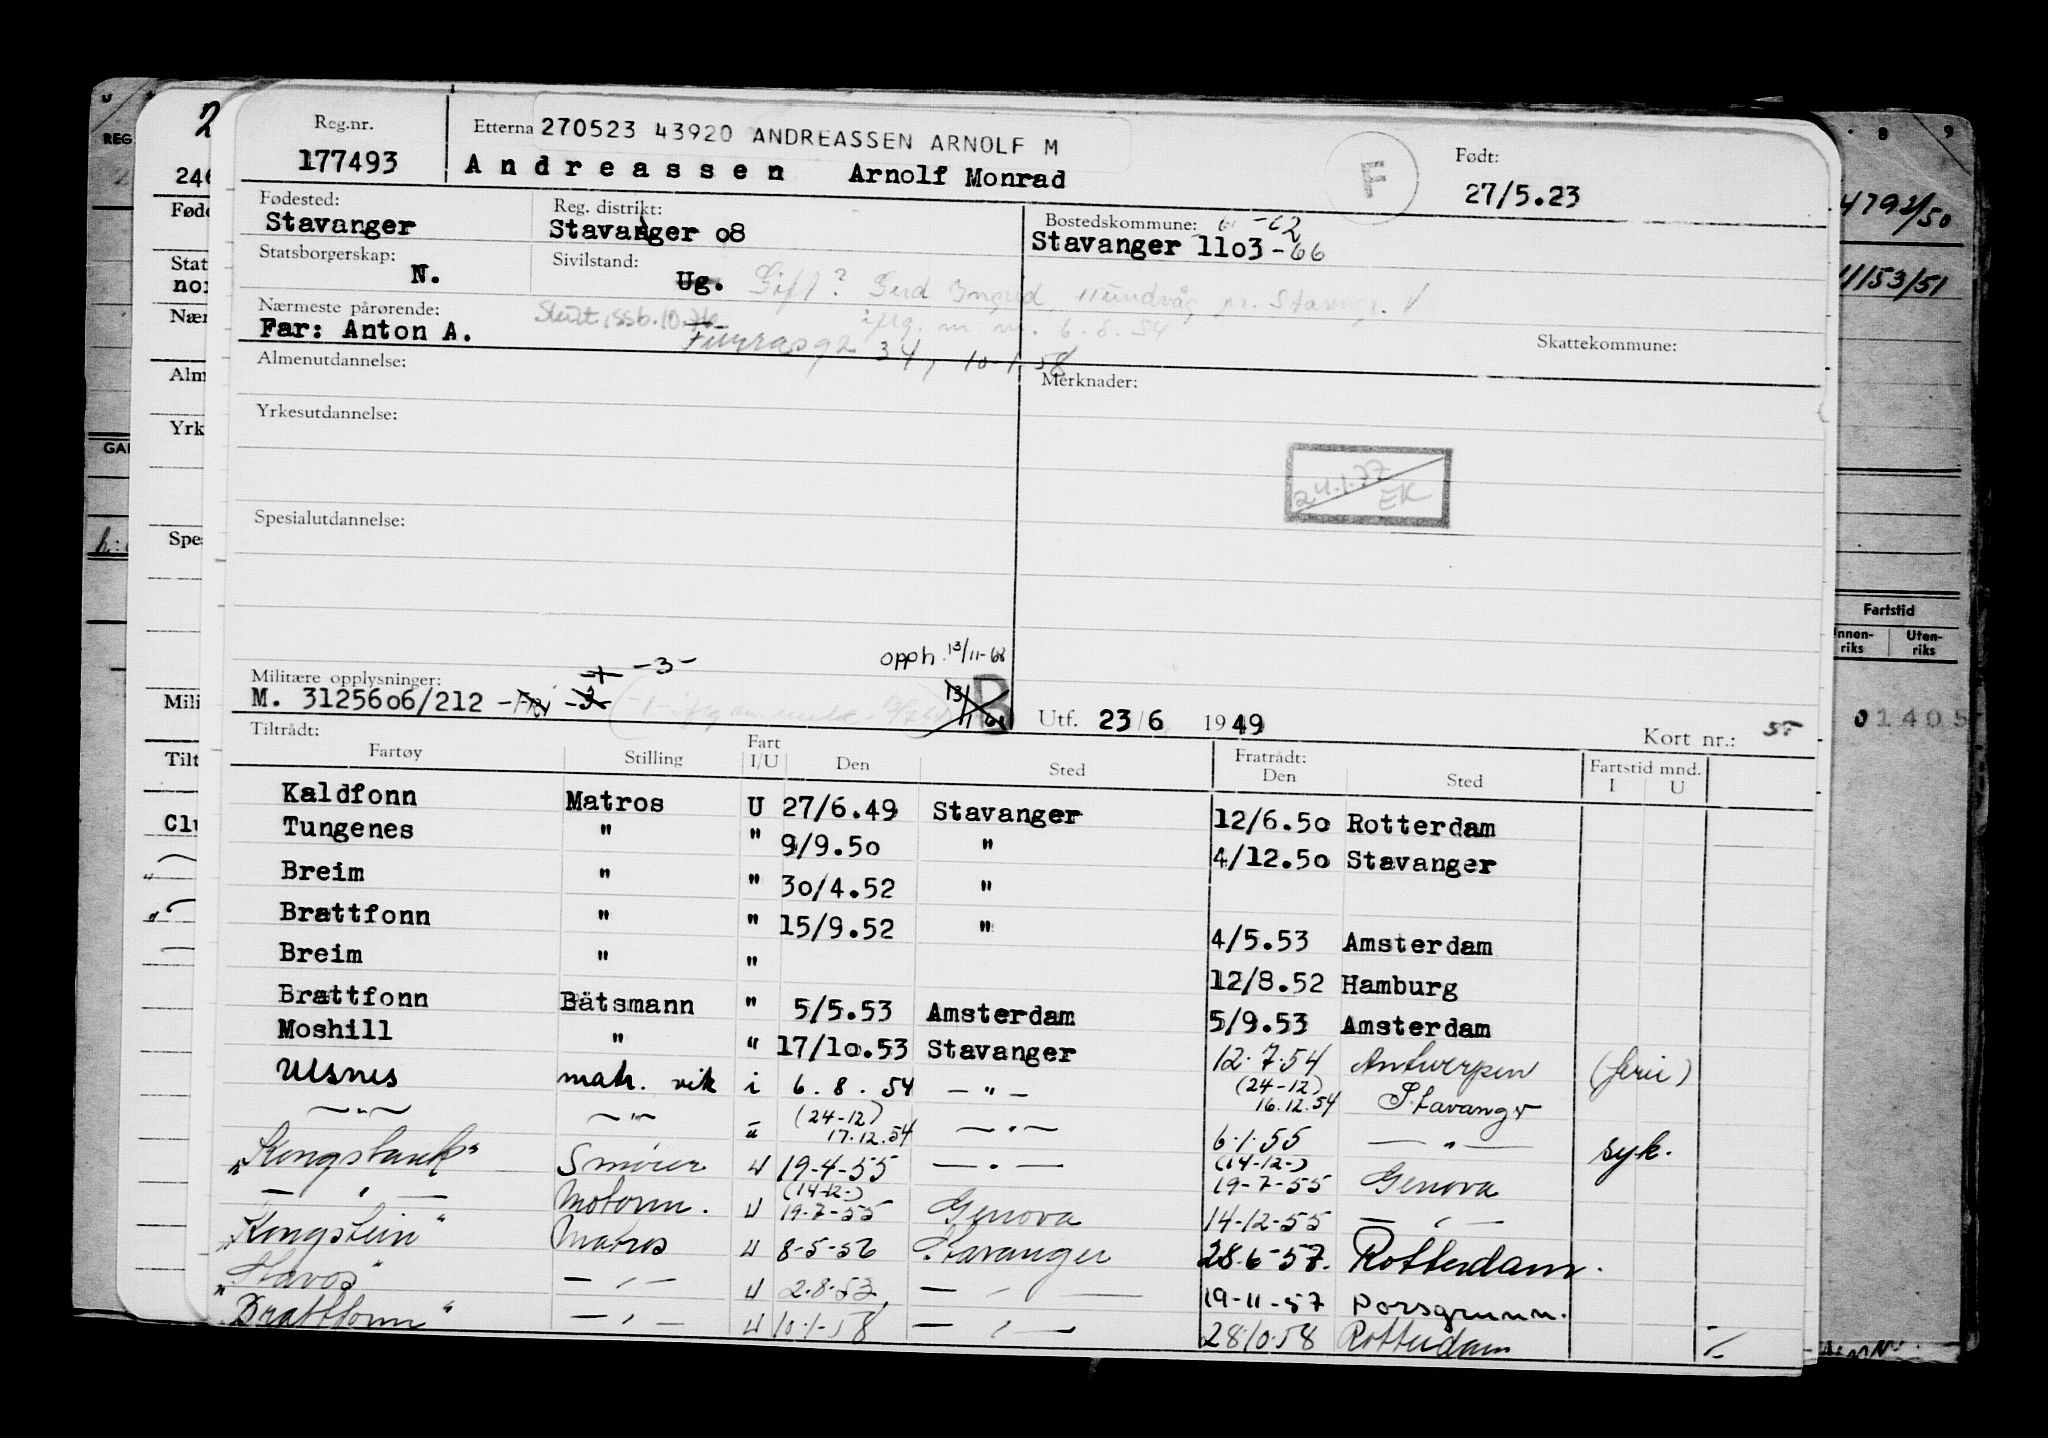 Reg.nr.
177493
Etterna 270523 43920 ANDREASSEN ARNOLF M
Andreassen Arnolf Monrad
F
Født:
27/5.23
Fødested:
Stavanger
Reg. distrikt:
Stavanger 08
Bostedskommune: -62
Stavanger 1103-66
Statsborgerskap:
N.
Sivilstand:
Ug. Gift? Gerd Ingrid, Hundvåg, pr. Stavngr.
Nærmeste pårørende:
Far: Anton A.
6.8.54
34, 10-1-58
Skattekommune:
Almenutdannelse:
Merknader:
Yrkesutdannelse:
24.1.77
EK
Spesialutdannelse:
opph. 13/11-68
-3-
Militære opplysninger:
M. 3125606/212 -Fri -3
13/11 68
B
Utf. 23/6 1949
Kort nr.:
Tiltrådt:
Fartøy Stilling Fart I/U Den Sted Fratrådt: Den Sted Fartstid mnd. I U
Kaldfonn Matros U 27/6.49 Stavanger 12/6.50 Rotterdam
Tungenes " " 9/9.50 " 4/12.50 Stavanger
Breim " " 30/4.52 "
Brattfonn " " 15/9.52 " 4/5.53 Amsterdam
Breim " " 12/8.52 Hamburg
Brattfonn Båtsmann " 5/5.53 Amsterdam 5/9.53 Amsterdam
Moshill " " 17/10.53 Stavanger 12.7.54 Antwerpen (ferie)
Ulsnes matr. vik i 6.8.54 - " - (24-12) 16.12.54 Stavanger
- " - - " - u (24-12) 17.12.54 - " - 6.1.55 - " - syk.
"Kongsbank" Smører U 19-4-55 - " - (14-12-) 19-7-55 Genova
- " - Motorm. U (14-12-) 19-7-55 Genova 14-12-55 - " -
"Kongstein" Matros U 8-5-56 Stavanger 28-6-57. Rotterdam.
"Stavos" - " - U - " - 19-11-57 Porsgrunn.
"Brattfonn" - " - U 10-1-58 - " - 28.10.58 Rotterdam
REG
246
Stat
nor
Nær
Alm
Yrk
GAI
Spes
Mili
Tilt
8 9
4792/50
4153/51
Fartstid
Innen-
riks
Uten-
riks
01405